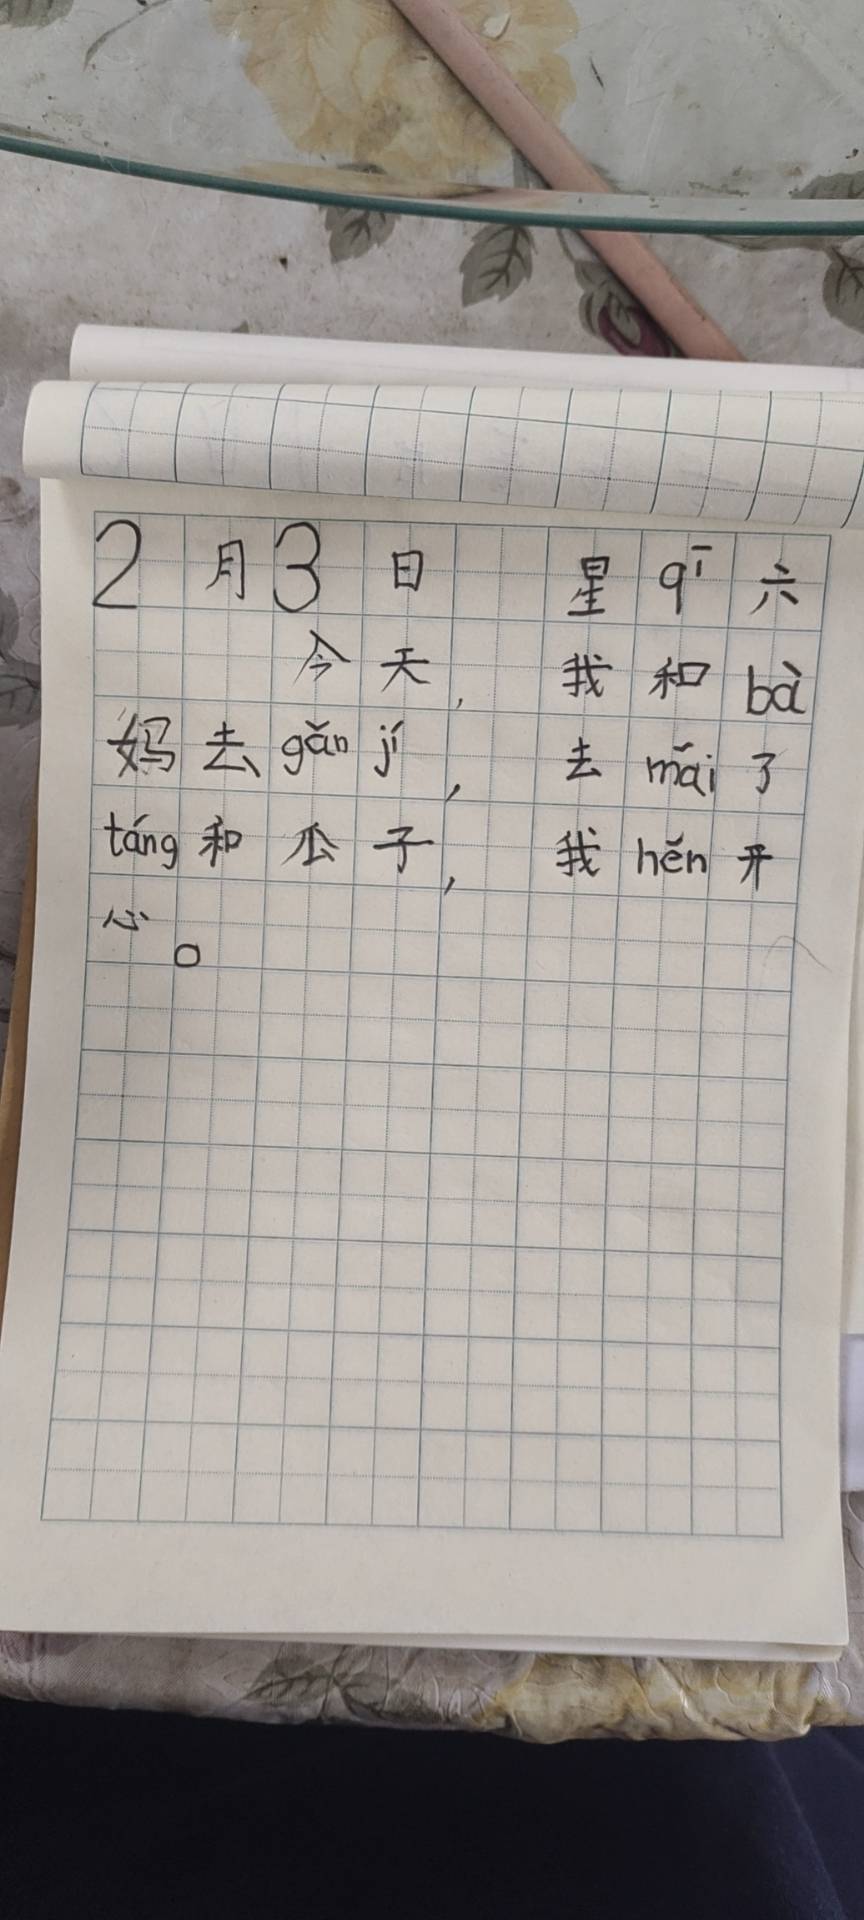 2月3日 星qī六
今天，我和bà
妈去gǎn jí，去mǎi了
táng和瓜子，我hěn开
心。